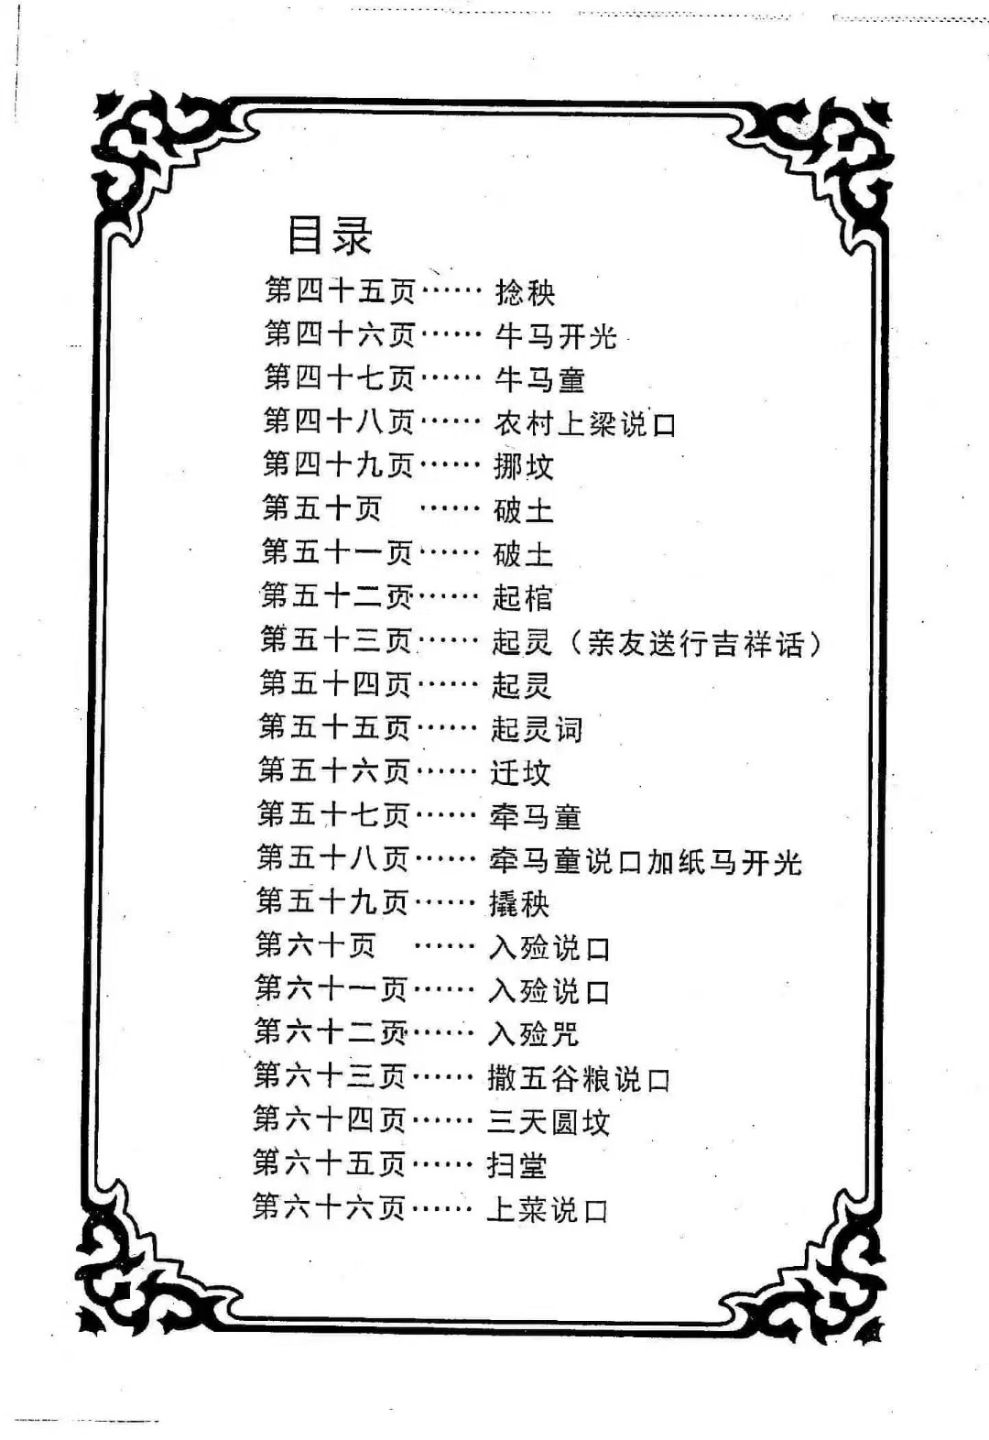 目录
第四十五页……捻秧
第四十六页……牛马开光
第四十七页……牛马童
第四十八页……农村上梁说口
第四十九页……挪坟
第五十页 ……破土
第五十一页……破土
第五十二页……起棺
第五十三页……起灵（亲友送行吉祥话）
第五十四页……起灵
第五十五页……起灵词
第五十六页……迁坟
第五十七页……牵马童
第五十八页……牵马童说口加纸马开光
第五十九页……撬秧
第六十页 ……入殓说口
第六十一页……入殓说口
第六十二页……入殓咒
第六十三页……撒五谷粮说口
第六十四页……三天圆坟
第六十五页……扫堂
第六十六页……上菜说口